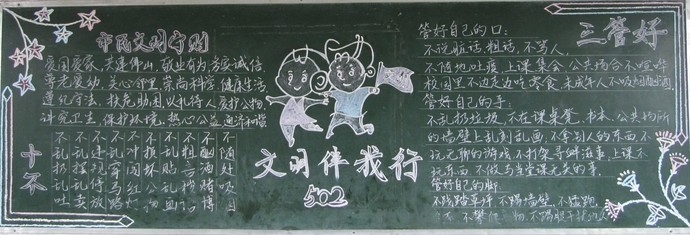 市民文明守则
爱国爱家 共建佛山 敬业有为 方爱诚信
尊老爱幼 关心邻里 崇尚科学 健康生活
遵纪守法 扶危助困 礼待人 爱护公物
讲究卫生 保护环境 热心公益
十不
不乱扔乱吐
不乱摆乱卖
不违规停放
不冲闯马路
不损坏公物
不乱贴乱画
不粗言秽语
不酗酒赌博
不随处吸烟
文明伴我行
502
三管好
管好自己的口:
不说脏话、粗话、不骂人、
不随地吐痰、上课、集会、公共场合不喧哗
校园里不边走边吃零食、未成年人不吸烟酗酒
管好自己的手:
不乱扔垃圾、不在课桌凳、书本、公共场所
的墙壁上乱刻乱画、不拿别人的东西、不
玩无聊的游戏、不打架寻衅滋事、上课不
玩东西、不做与当堂课无关的事、
管好自己的脚:
不践踏草坪、不踢墙壁、不猛跑、